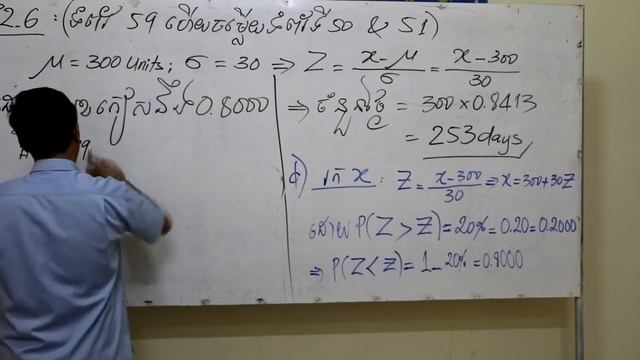 2.6 : (ទំព័រ 59 ហើយចម្លើយទំព័រទី 50 & 51)
μ = 300 units ; σ = 30 ⇒ Z = x-μ/σ = x-300/30
0.8000
⇒ ចំនួនថ្ងៃ = 300 x 0.8413
= 253 days
d) រក x : Z = x-300/30 ⇒ x = 300+30Z
ដោយ P(Z > Z) = 20% = 0.20 = 0.2000
⇒ P(Z < Z) = 1 - 20% = 0.8000